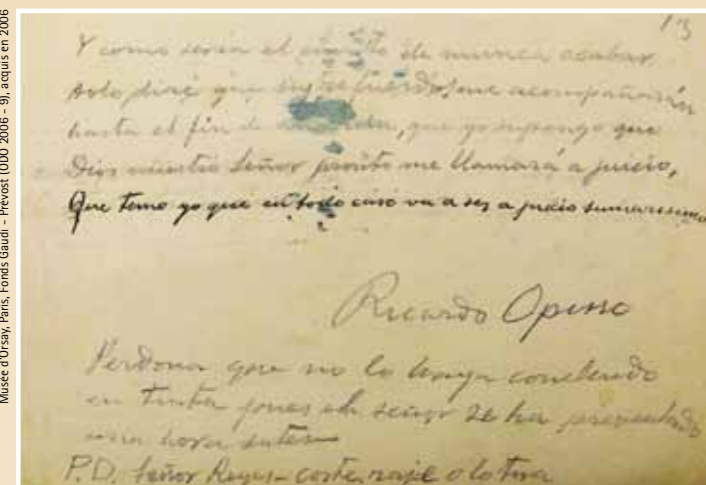 Musée d'Orsay, Paris, Fonds Gaudi - Prévost (ODO 2006 - 9), acquis en 2006
13
Y como seria el cuento de nunca acabar
solo diré que me acompañarán
hasta el fin de que yo supongo que
Dios nuestro Señor pronto me llamará a juicio,
Que temo yo que en todo caso va a ser a juicio sumarissimo
Ricardo Opisso
Perdona que no lo haya concluido
en tinta pues el señor se ha presentado
una hora antes
P.D. Señor Reyes - corte, raje o lo tira